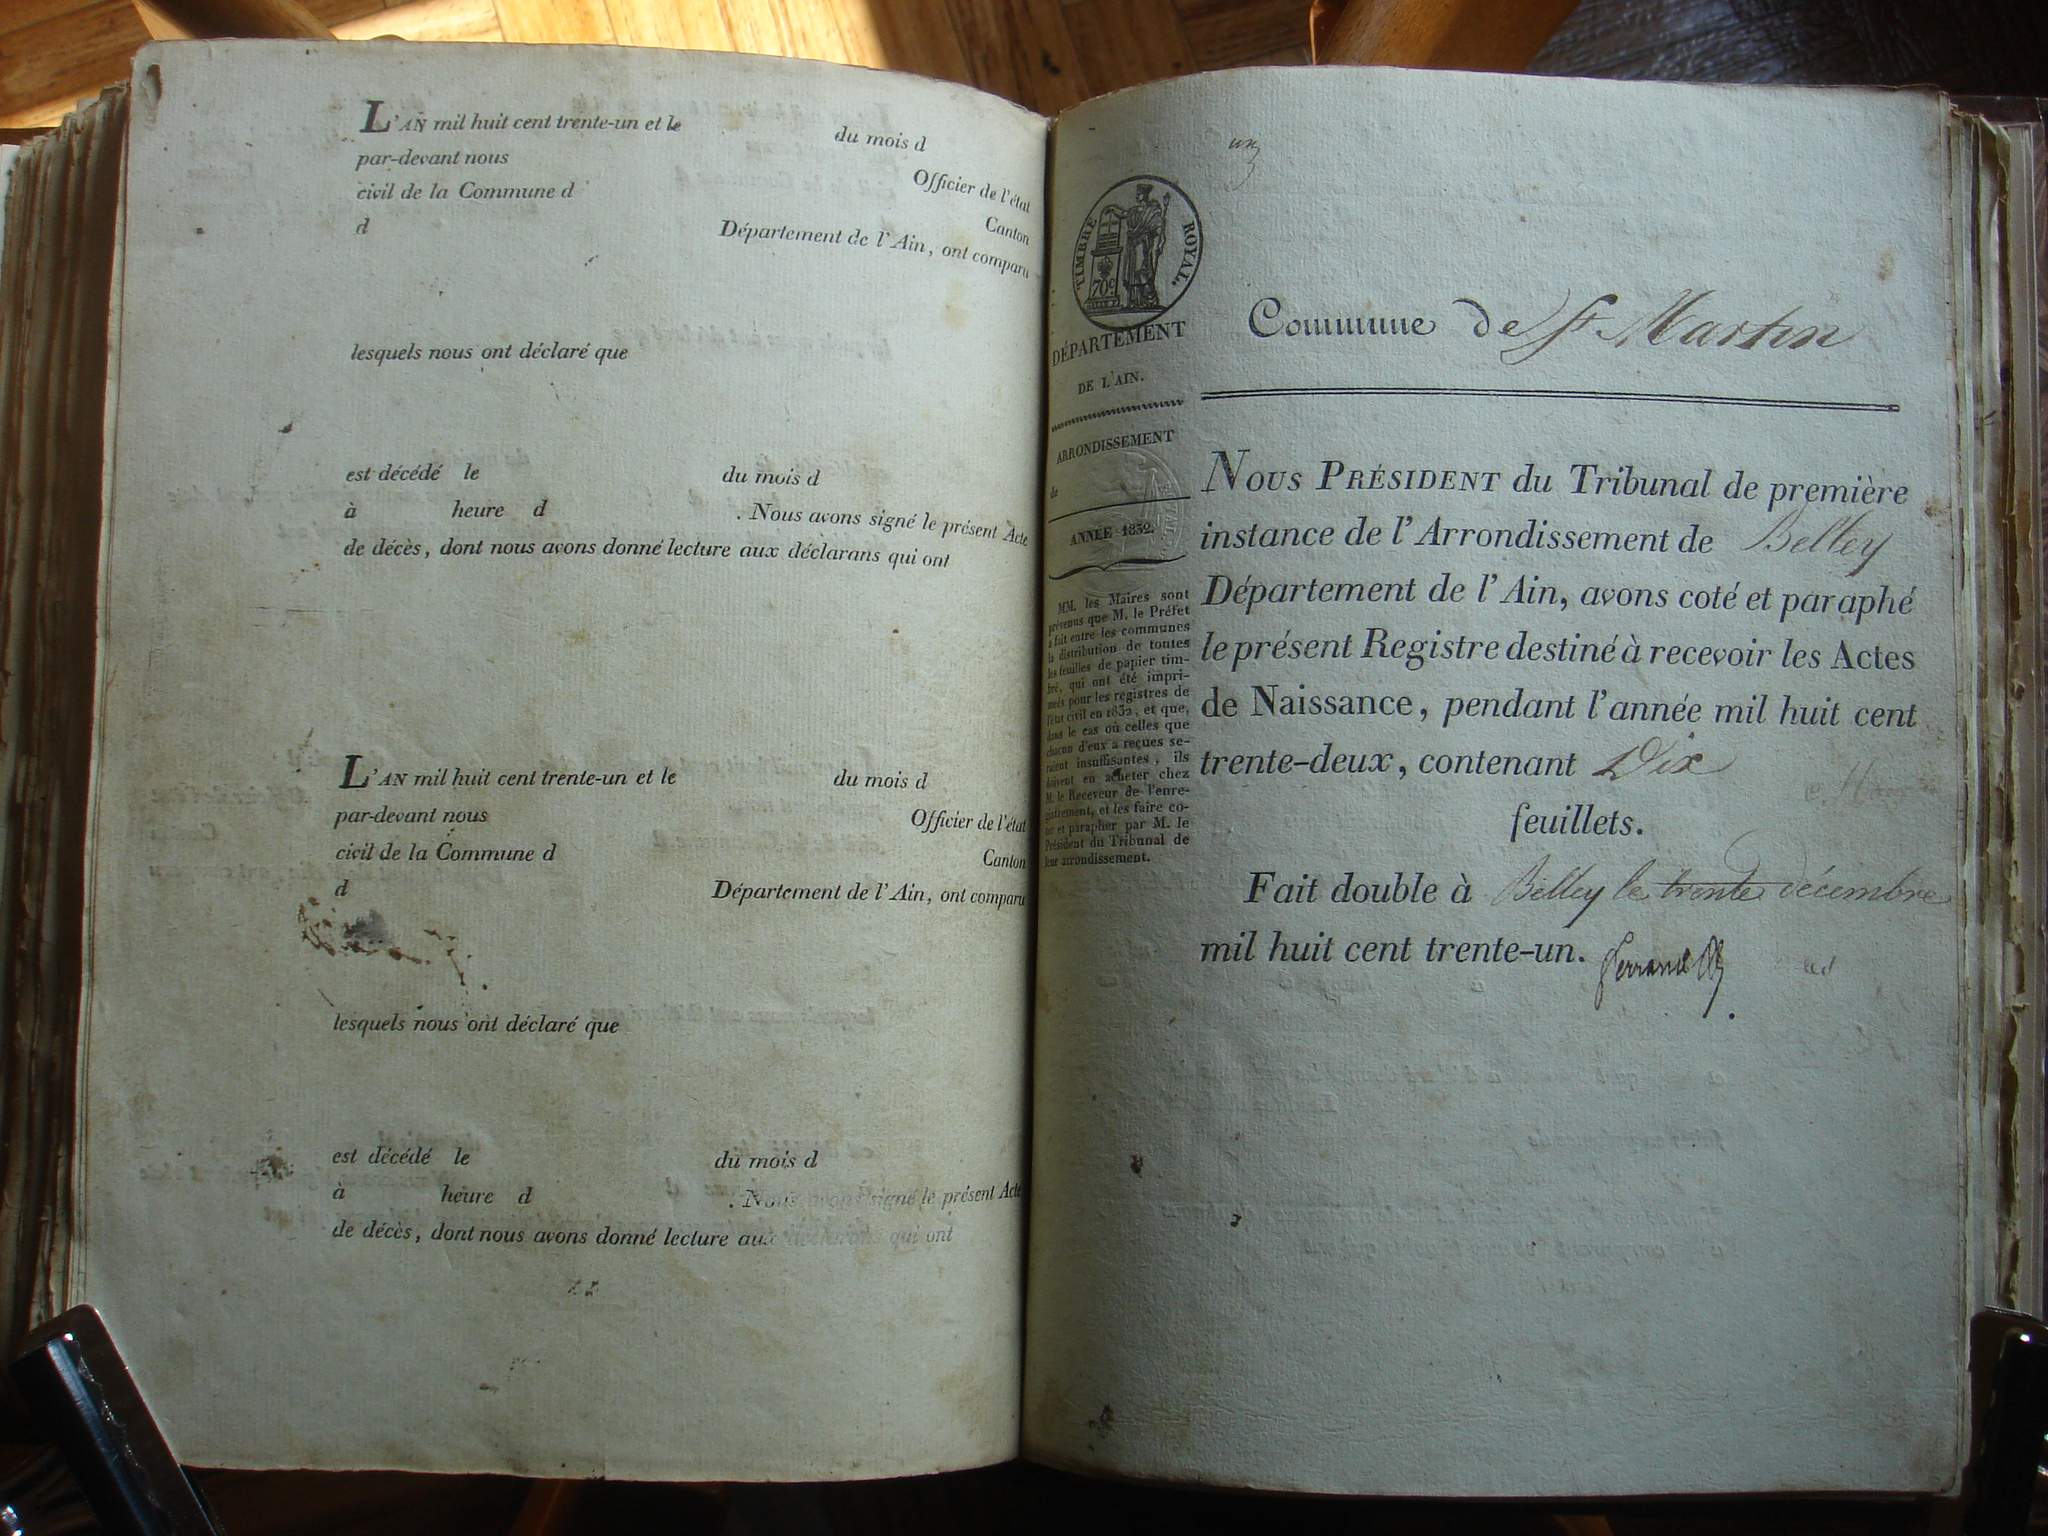 L'AN mil huit cent trente-un et le du mois d
par-devant nous Officier de l'état
civil de la Commune d Canton
d Département de l'Ain, ont comparu
lesquels nous ont déclaré que
est décédé le du mois d
à heure d . Nous avons signé le présent Acte
de décès, dont nous avons donné lecture aux déclarans qui ont
L'AN mil huit cent trente-un et le du mois d
par-devant nous Officier de l'état
civil de la Commune d Canton
d Département de l'Ain, ont comparu
lesquels nous ont déclaré que
est décédé le du mois d
à heure d . Nous avons signé le présent Acte
de décès, dont nous avons donné lecture aux déclarans qui ont
un
TIMBRE ROYAL.
70c
DÉPARTEMENT
DE L'AIN.
ARRONDISSEMENT
de
ANNÉE 1832.
MM. les Maires sont
prévenus que M. le Préfet
a fait entre les communes
la distribution de toutes
les feuilles de papier tim-
bré, qui ont été impri-
més pour les registres de
l'état civil en 1832, et que,
dans le cas où celles que
chacun d'eux a reçues se-
raient insuffisantes, ils
doivent en acheter chez
M. le Receveur de l'enre-
gistrement, et les faire co-
ter et parapher par M. le
Président du Tribunal de
leur arrondissement.
Commune de St Martin
NOUS PRÉSIDENT du Tribunal de première
instance de l'Arrondissement de Belley
Département de l'Ain, avons coté et paraphé
le présent Registre destiné à recevoir les Actes
de Naissance, pendant l'année mil huit cent
trente-deux, contenant Dix
feuillets.
Fait double à Belley le trente décembre
mil huit cent trente-un.